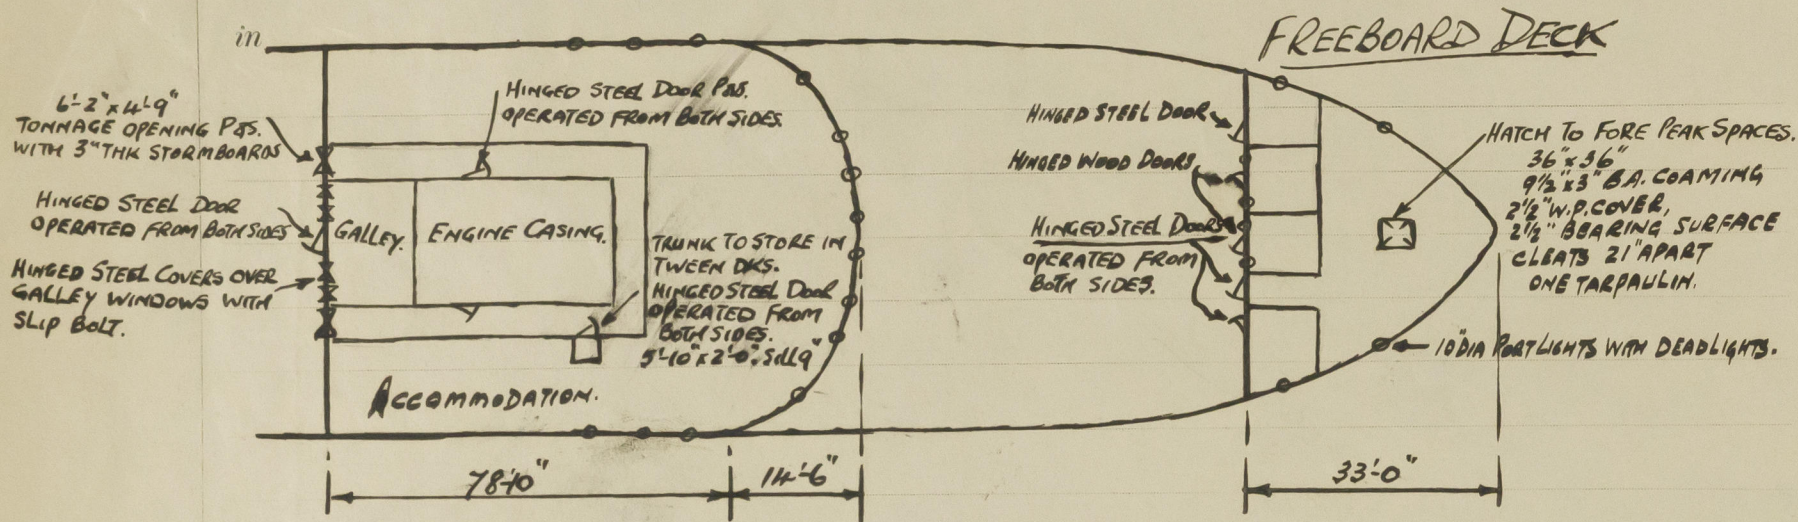 in
FREEBOARD DECK
6'-2" x 4'-9"
TONNAGE OPENING P&S.
WITH 3" THK STORMBOARDS
HINGED STEEL DOOR P&S.
OPERATED FROM BOTH SIDES.
HINGED STEEL DOOR
OPERATED FROM BOTH SIDES
HINGED STEEL COVERS OVER
GALLEY WINDOWS WITH
SLIP BOLT.
GALLEY.
ENGINE CASING.
TRUNK TO STORE IN
TWEEN DKS.
HINGED STEEL DOOR
OPERATED FROM
BOTH SIDES.
5'-10" x 2'-0". SILL 9"
ACCOMMODATION.
HINGED STEEL DOOR
HINGED WOOD DOORS
HINGED STEEL DOORS
OPERATED FROM
BOTH SIDES.
HATCH TO FORE PEAK SPACES.
36" x 36"
9½" x 3" B.A. COAMING
2½" W.P. COVER,
2½" BEARING SURFACE
CLEATS 21" APART
ONE TARPAULIN.
10 DIA PORTLIGHTS WITH DEADLIGHTS.
78'-10"
14'-6"
33'-0"